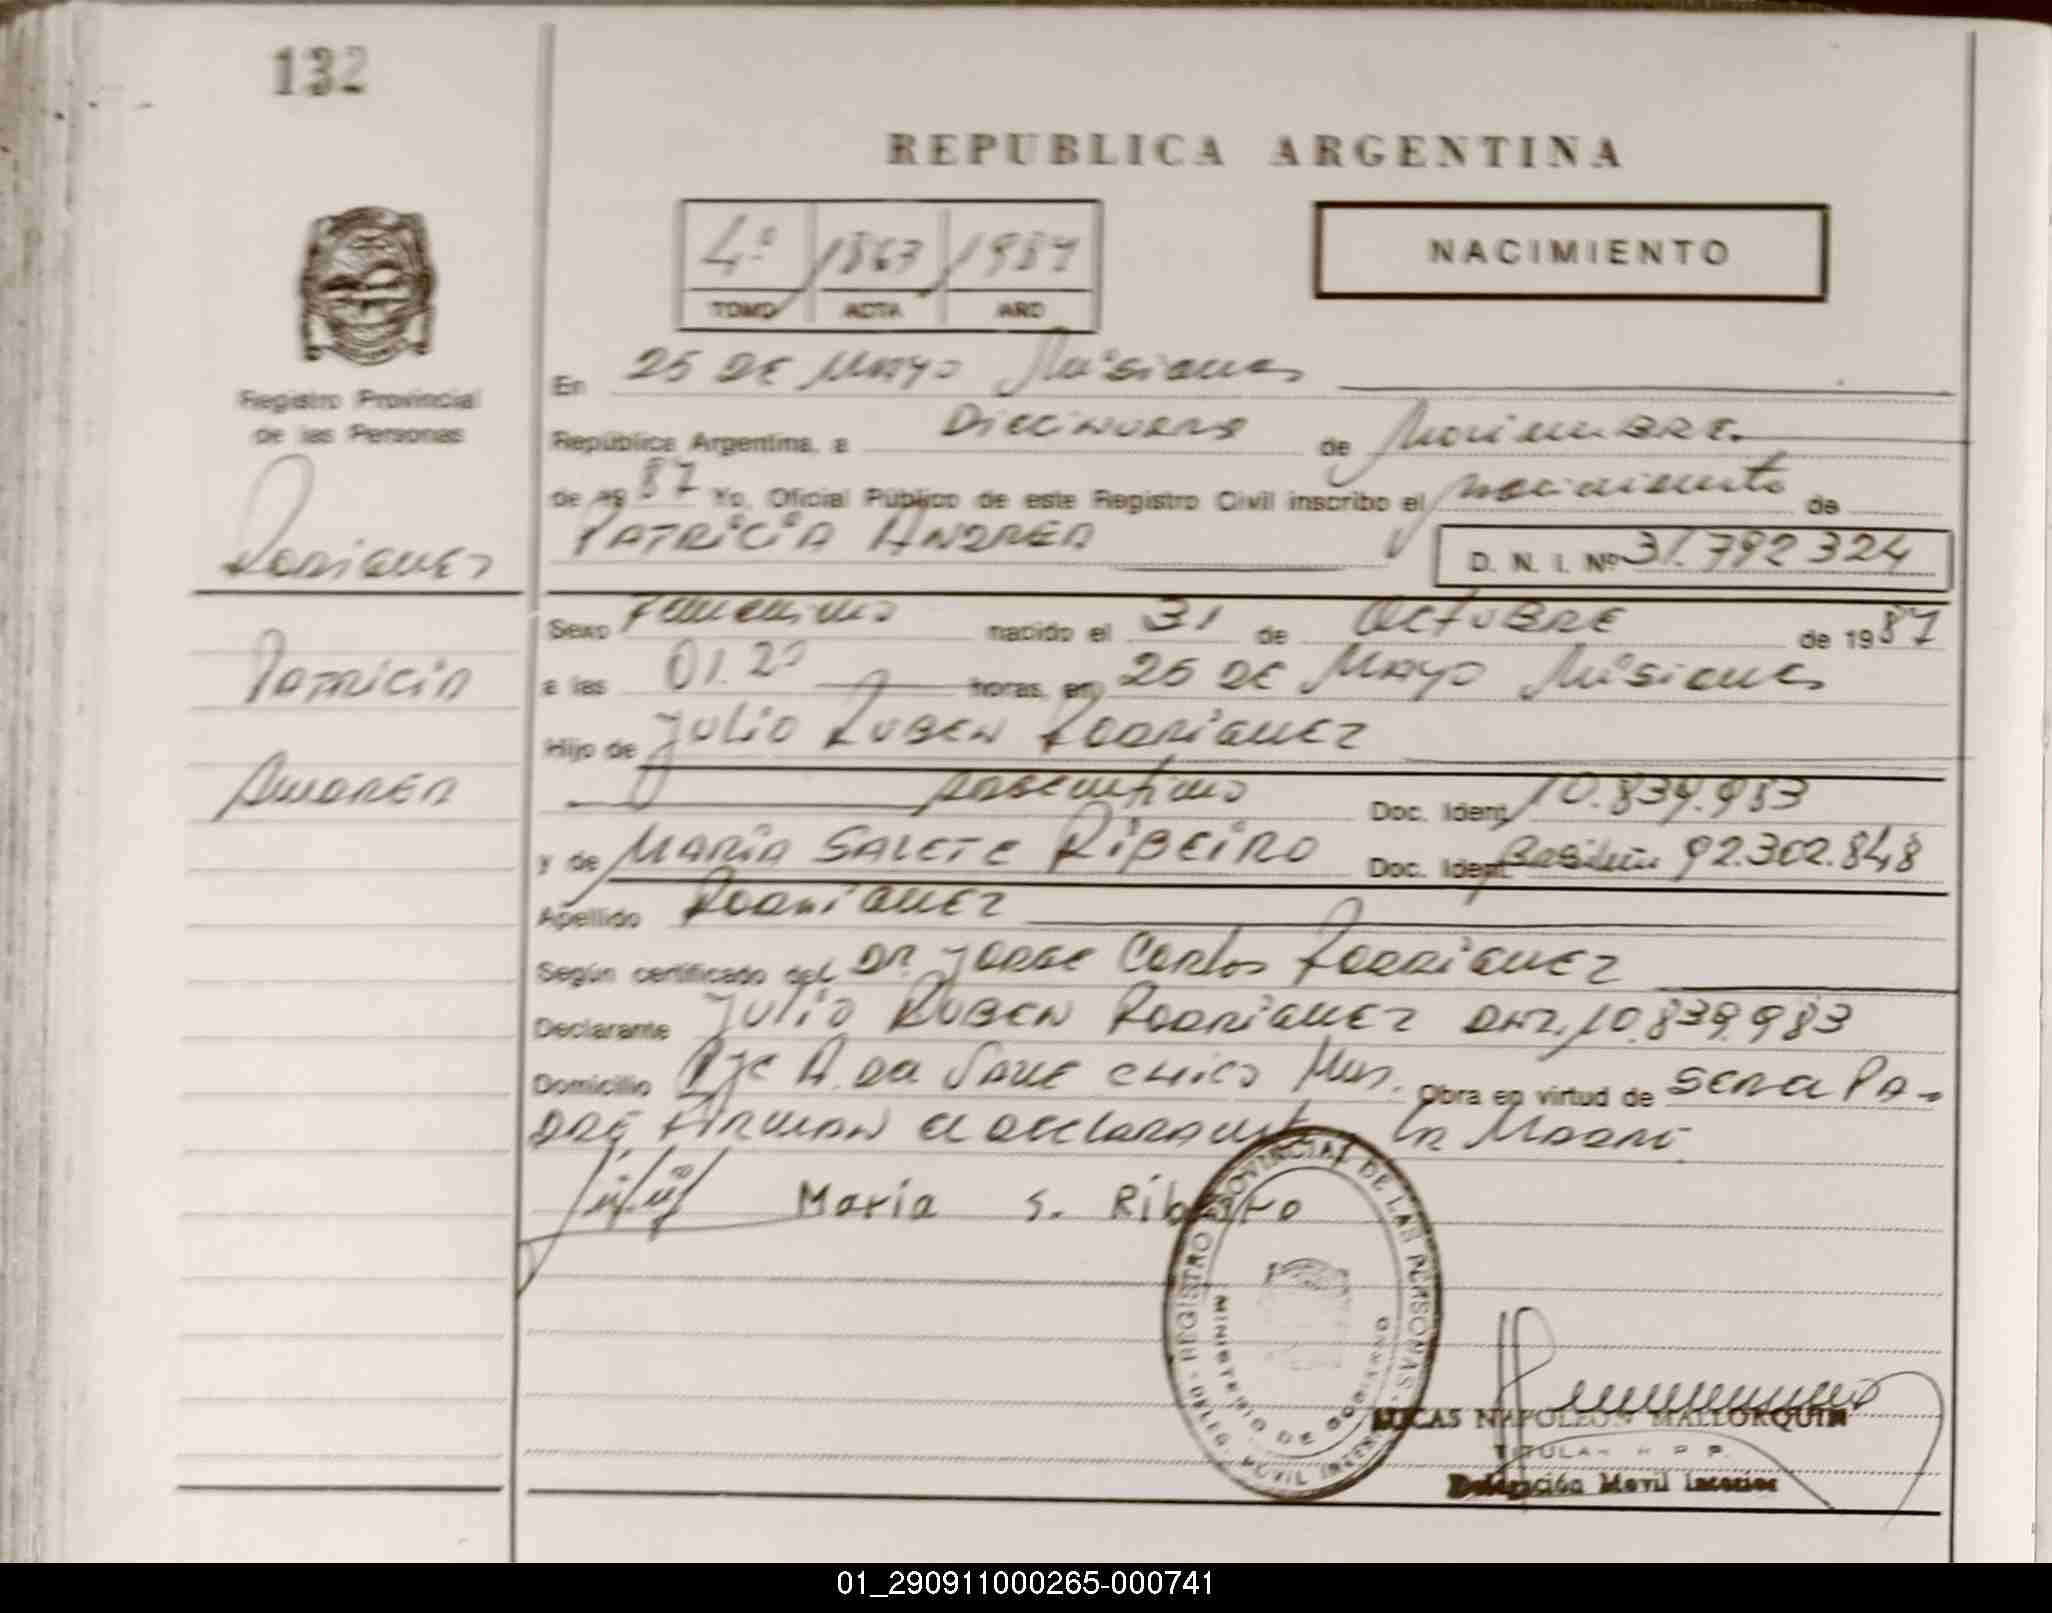 132
REPUBLICA ARGENTINA
4º 1863 1987
TOMO ACTA AÑO
NACIMIENTO
Registro Provincial
de las Personas
En 25 DE MAYO Misiones
República Argentina, a Diecinueve de Noviembre
de 19 87 Yo, Oficial Público de este Registro Civil inscribo el nacimiento de
PATRICIA ANDREA
D. N. I. Nº 31.792324
RODRIGUEZ
PATRICIA
ANDREA
Sexo Femenino nacido el 31 de OCTUBRE de 1987
a las 01.20 horas, en 25 DE MAYO Misiones
Hijo de JULIO RUBEN RODRIGUEZ
Argentino Doc. Ident. 10.839.983
y de MARIA SALETE RIBEIRO Doc. Ident. 92.302.848
Apellido RODRIGUEZ
Según certificado del DR. JORGE CARLOS RODRIGUEZ
Declarante JULIO RUBEN RODRIGUEZ DNI. 10.839.983
Domicilio Obra en virtud de SER el PA-
DRE FIRMAN el declarante la MADRE
Maria S. Ribeiro
REGISTRO PROVINCIAL DE LAS PERSONAS
MINISTERIO DE GOBIERNO
DELEG. MOVIL INTERIOR
LUCAS NAPOLEON MALLORQUIN
TITULAR R. P. P.
Delegación Movil Interior
01_290911000265-000741